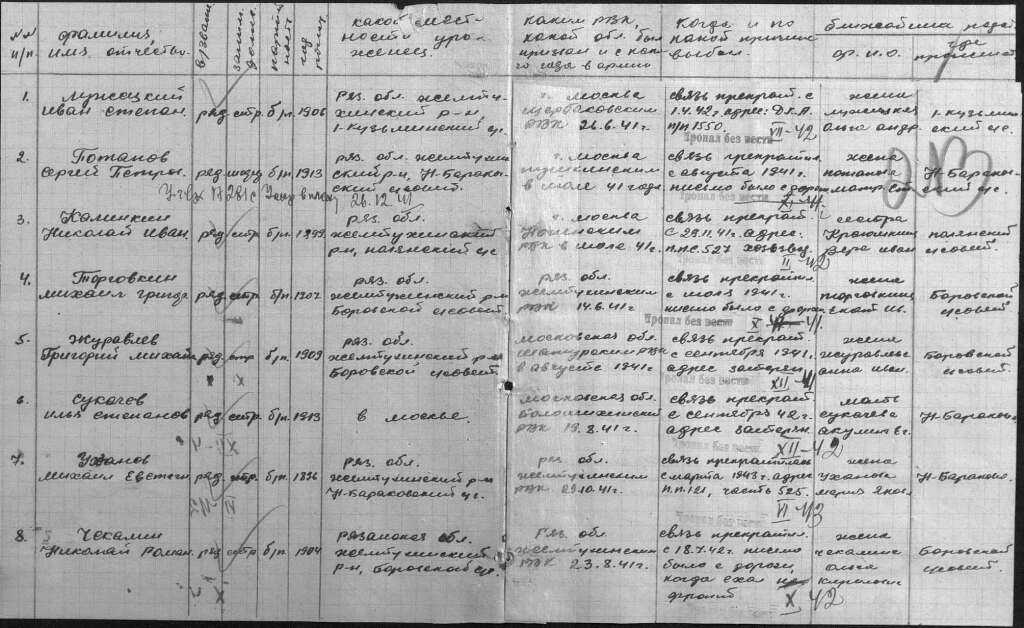 №№ п/п
фамилия, имя, отчество
в/зван.
заним. должн.
партийность
год рожд.
какой местности уроженец.
каким РВК, какой обл. был призван и с какого года в армии
Когда и по какой причине выбыл.
ближайшие родств.
ф. и. о.
где проживает
1.
Иван Степан.
ряд. стр. б/п. 1906
ряз. обл. желтухинский р-н
1-Кузьминский с/с.
г. Москва
Щербаковским
РВК 26.6.41г.
связь прекрат. с
1.4.42г. адрес: Д.К.А.
п/п 1550.
Пропал без вести
VII-42
жена
анна андр.
2.
Потапов
Сергей Петров.
ряд. б/п 1913
ряз. обл. желтухинский р-н, Н-Бараковский с/совет.
26.12.41
г. Москва
в июле 41 года
связь прекратил.
с августа 1941г.
письмо было с дороги
Пропал без вести
XI-41.
жена
потапова
Н-Бараковский с/с.
213
3.
Калинкин
Николай Иван.
ряд. стр. б/п. 1899
ряз. обл.
желтухинский
р-н, с/с
г. Москва
РВК в июле 41г.
связь прекрат.
с 29.11.41г. адрес.
п.п.с. 527 хозвзвод
Пропал без вести
II-42
сестра
вера иван
полянский
с/совет.
4.
Торговкин
михаил
ряд. стр. б/п. 1902
ряз. обл.
желтухинский р-н
Боровской с/совет.
ряз. обл.
желтухинским
РВК 14.6.41г.
связь прекратил.
с июля 1941г.
письмо было с дороги
Пропал без вести
X-41.
жена
Боровской
с/совет.
5.
Журавлев
Григорий михайл
ряд. стр. б/п. 1909
ряз. обл.
желтухинский р-н
Боровской с/совет.
московская обл.
в августе 1941г.
связь прекрат.
с сентября 1941г.
адрес затерян
Пропал без вести
XII-41
жена
журавлева
анна иван.
Боровской
с/совет.
6.
Сукачев
илья степанов
ряд. стр. б/п. 1913
в москве.
московская обл.
РВК 19.8.41г.
связь прекрат.
с сентября 42г.
адрес затерян.
Пропал без вести
XII-42
мать
сукачева
Н-Бараково.
7.
Уханов
михаил Евстегн
ряд. стр. б/п. 1896
ряз. обл.
желтухинский р-н
Н-Бараковский с/с.
ряз. обл.
желтухинским
РВК 29.10.41г.
связь прекратилась
с марта 1943г. адрес
п.п. 121, часть 525.
Пропал без вести
VI-43
жена
Уханова
мария яков.
Н-Бараково.
8.
Чекалин
Николай Роман.
ряд. стр. б/п. 1904
рязанская обл.
желтухинский
р-н, Боровской с/с.
ряз. обл
желтухинским
РВК 23.8.41г.
связь прекратил.
с 18.7.42г. письмо
было с дороги,
когда ехал на
фронт
X-42
жена
чекалина
ольга
Боровской
с/совет.